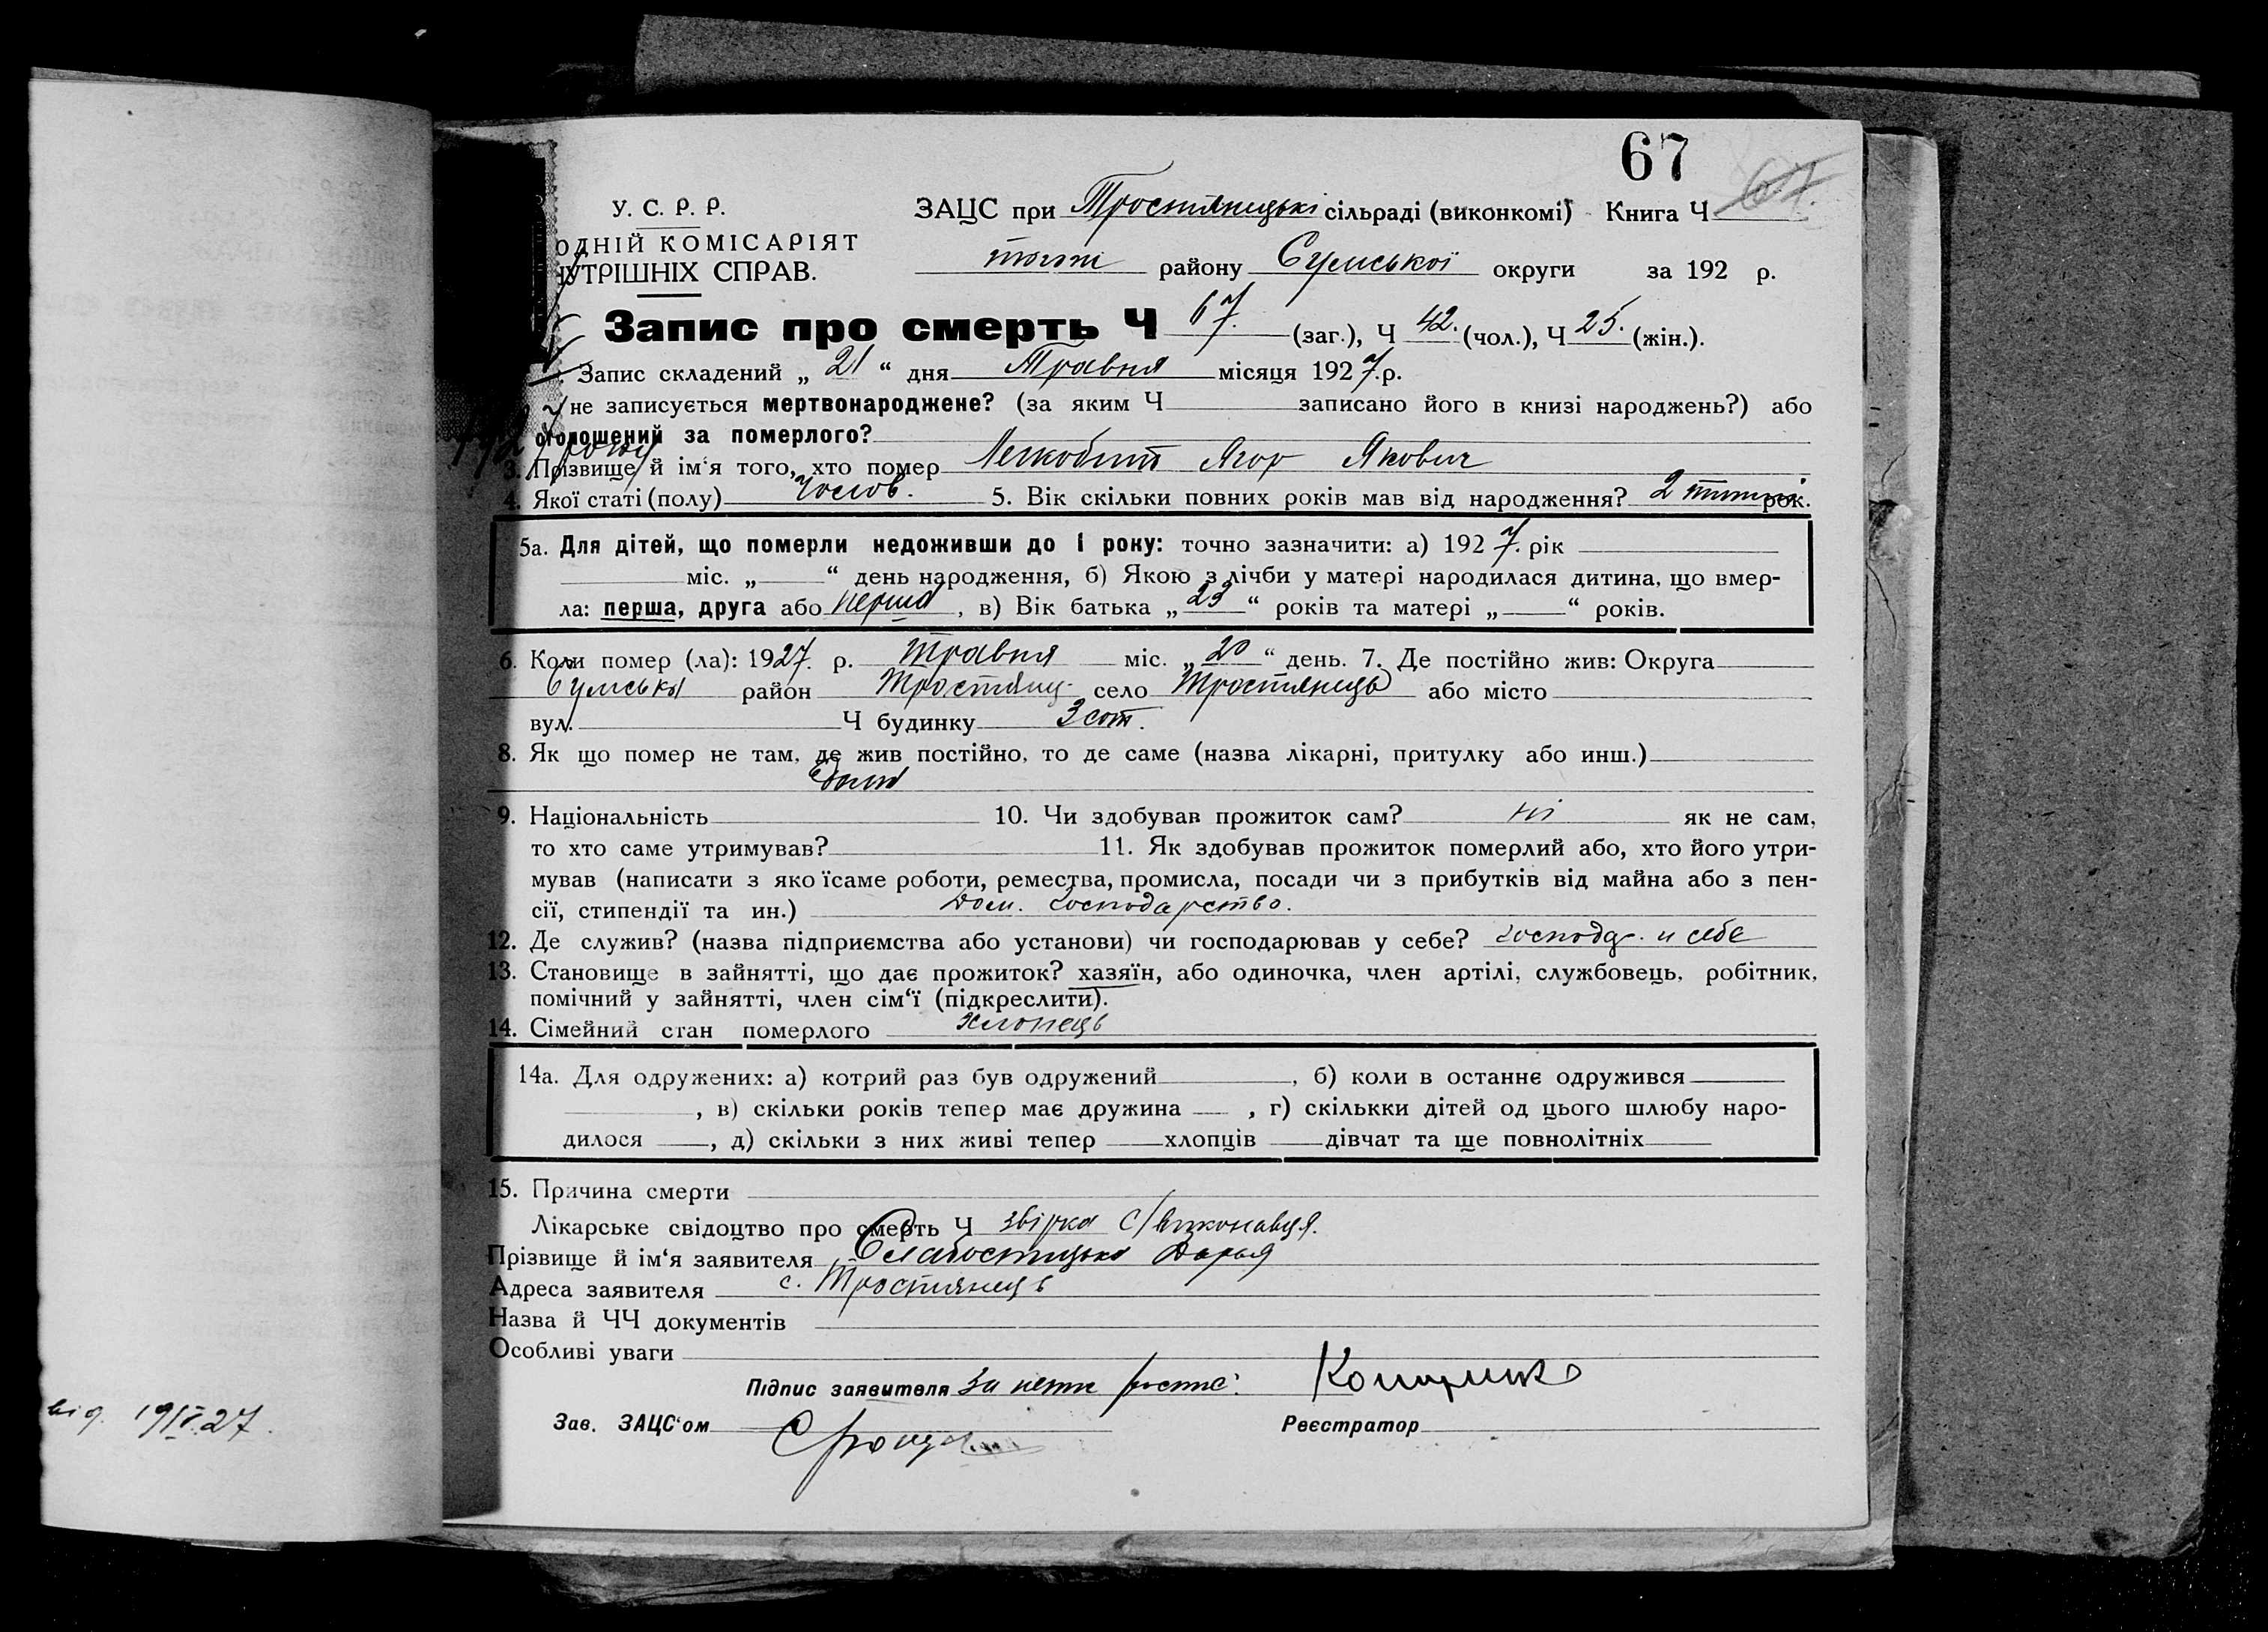 67
У. С. Р. Р. ЗАЦС при Тростянецькі сільраді (виконкомі) Книга Ч 67.
ОДНІЙ КОМІСАРІЯТ
району Сумської округи за 192 р.
УТРІШНІХ СПРАВ.
Запис про смерть Ч 67. (заг.), Ч 42. (чол.), Ч 25. (жін.).
Запис складений „ 21 “ дня Травня місяця 1927.р.
не записується мертвонароджене? (за яким Ч записано його в книзі народжень?) або
оголошений за померлого?
3. Прізвище й ім‘я того, хто помер Легкобит Ягор Якович
4. Якої статі (полу) Чолов. 5. Вік скільки повних років мав від народження? 2 тижні рок.
5а. Для дітей, що померли недоживши до 1 року: точно зазначити: а) 1927. рік
міс. „ “ день народження, б) Якою з лічби у матері народилася дитина, що вмер-
ла: перша, друга або перша, в) Вік батька „ 23 “ років та матері „ “ років.
6. Коли помер (ла): 1927. р. травня міс. „ 20 “ день. 7. Де постійно жив: Округа
Сумська район Тростянец. село Тростянець або місто
вул. Ч будинку 3 сот.
8. Як що помер не там, де жив постійно, то де саме (назва лікарні, притулку або инш.)
9. Національність 10. Чи здобував прожиток сам? ні як не сам,
то хто саме утримував? 11. Як здобував прожиток померлий або, хто його утри-
мував (написати з якоїсаме роботи, ремества, промисла, посади чи з прибутків від майна або з пен-
сії, стипендії та ин.) Дом. господарство.
12. Де служив? (назва підприємства або установи) чи господарював у себе? господар. и себе
13. Становище в зайнятті, що дає прожиток? хазяїн, або одиночка, член артілі, службовець, робітник,
помічний у зайнятті, член сім‘ї (підкреслити).
14. Сімейний стан померлого хлопець
14а. Для одружених: а) котрий раз був одружений , б) коли в останнє одружився
, в) скільки років тепер має дружина , г) скількки дітей од цього шлюбу наро-
дилося , д) скільки з них живі тепер хлопців дівчат та ще повнолітніх
15. Причина смерти
Лікарське свідоцтво про смерть Ч звірка с/виконавця.
Прізвище й ім‘я заявителя Дарья
Адреса заявителя с. Тростянець
Назва й ЧЧ документів
Особливі уваги
Підпис заявителя За
Зав. ЗАЦС‘ом Реєстратор